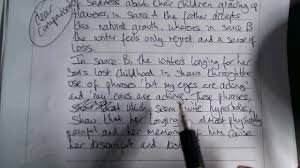 Near
comparison
of sadness about their children growing up
However, in source A the father accepts
this natural growth, whereas in source B
the writer feels only regret and a sense of
loss.
In source B, the writers longing for her
sons lost childhood is shown through the
use of phrases but my eyes are aching
and my ears are aching. These phrases,
show that seem quite hyperbolic,
show that her longing is almost physically
painful and her memories of him cause
her discomfort and